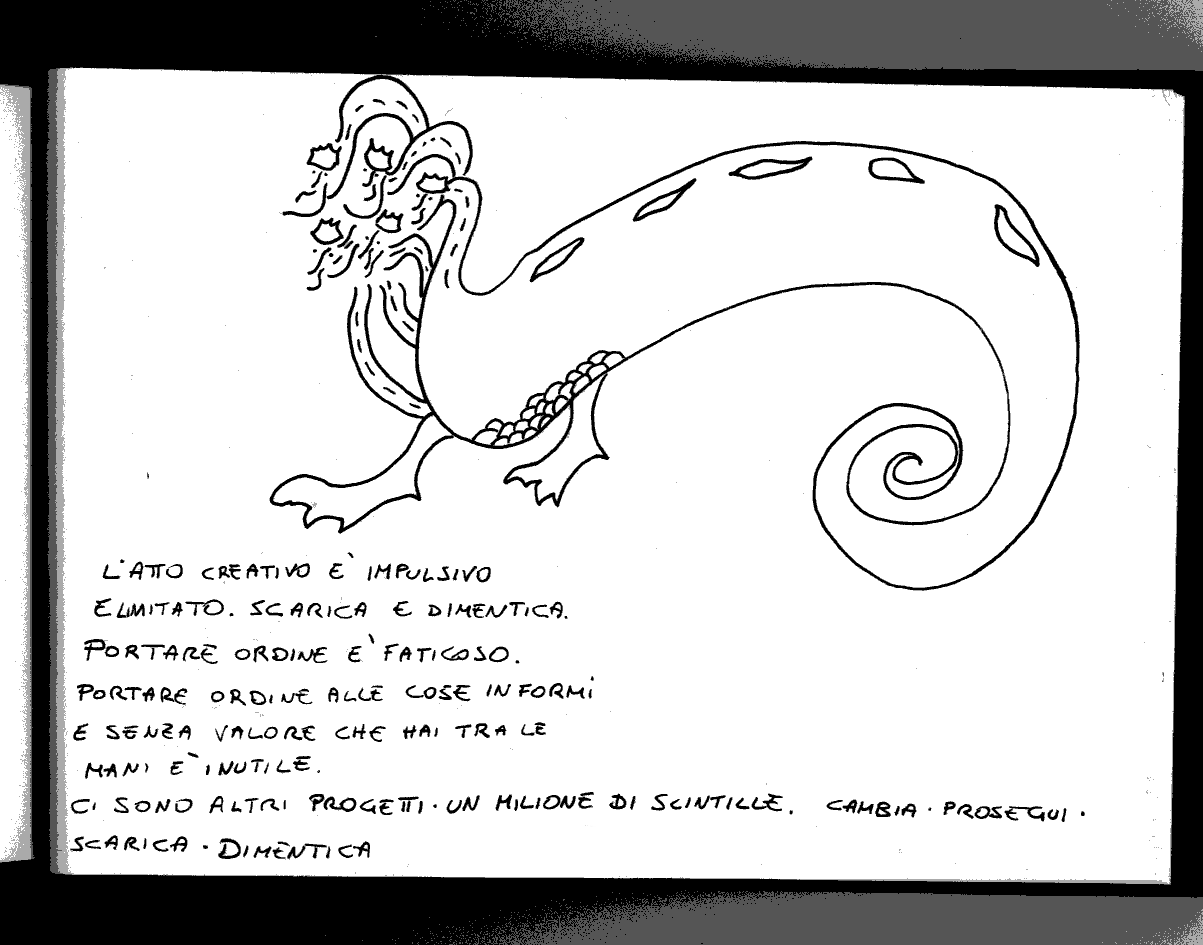 L'ATTO CREATIVO E' IMPULSIVO
E LIMITATO. SCARICA E DIMENTICA.
PORTARE ORDINE E' FATICOSO.
PORTARE ORDINE ALLE COSE INFORMI
E SENZA VALORE CHE HAI TRA LE
MANI E' INUTILE.
CI SONO ALTRI PROGETTI. UN MILIONE DI SCINTILLE. CAMBIA. PROSEGUI.
SCARICA. DIMENTICA